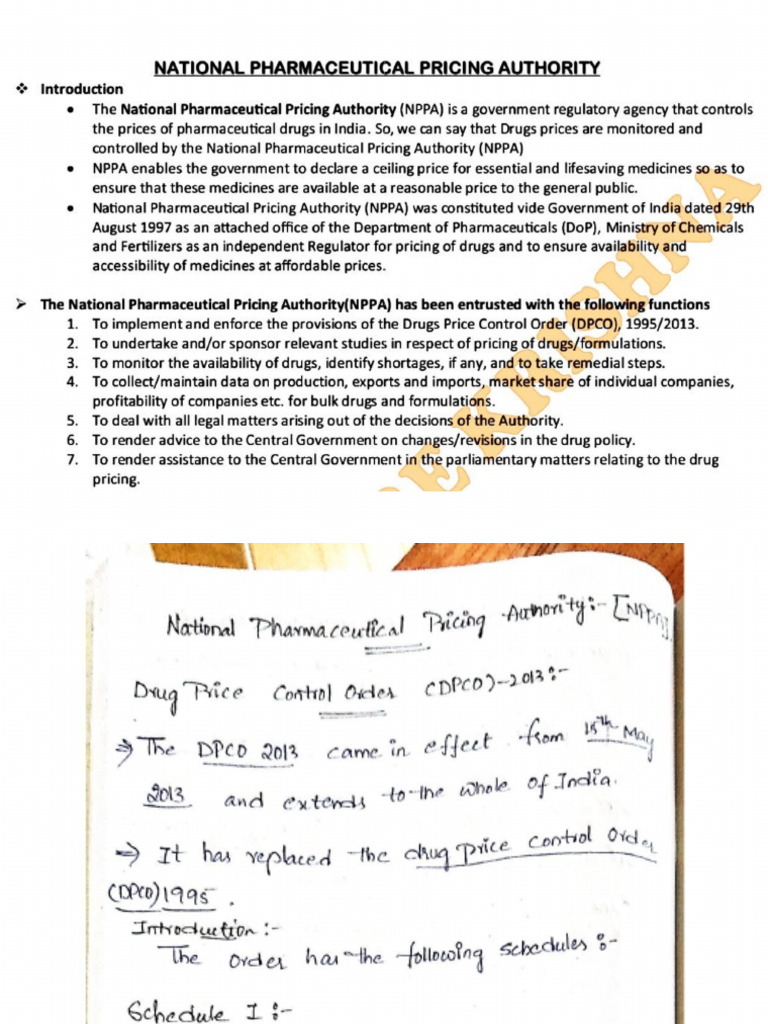 NATIONAL PHARMACEUTICAL PRICING AUTHORITY
❖ Introduction
• The National Pharmaceutical Pricing Authority (NPPA) is a government regulatory agency that controls
the prices of pharmaceutical drugs in India. So, we can say that Drugs prices are monitored and
controlled by the National Pharmaceutical Pricing Authority (NPPA)
• NPPA enables the government to declare a ceiling price for essential and lifesaving medicines so as to
ensure that these medicines are available at a reasonable price to the general public.
• National Pharmaceutical Pricing Authority (NPPA) was constituted vide Government of India dated 29th
August 1997 as an attached office of the Department of Pharmaceuticals (DoP), Ministry of Chemicals
and Fertilizers as an independent Regulator for pricing of drugs and to ensure availability and
accessibility of medicines at affordable prices.
➢ The National Pharmaceutical Pricing Authority(NPPA) has been entrusted with the following functions
1. To implement and enforce the provisions of the Drugs Price Control Order (DPCO), 1995/2013.
2. To undertake and/or sponsor relevant studies in respect of pricing of drugs/formulations.
3. To monitor the availability of drugs, identify shortages, if any, and to take remedial steps.
4. To collect/maintain data on production, exports and imports, market share of individual companies,
profitability of companies etc. for bulk drugs and formulations.
5. To deal with all legal matters arising out of the decisions of the Authority.
6. To render advice to the Central Government on changes/revisions in the drug policy.
7. To render assistance to the Central Government in the parliamentary matters relating to the drug
pricing.
KRISHNA
National Pharmaceutical Pricing Authority:- [NPPA]
Drug Price Control Order (DPCO)-2013:-
⇒ The DPCO 2013 came in effect from 15th May
2013 and extends to the whole of India.
⇒ It has replaced the drug price control Order
(DPCO)1995.
Introduction:-
The order has the following schedules:-
Schedule I:-